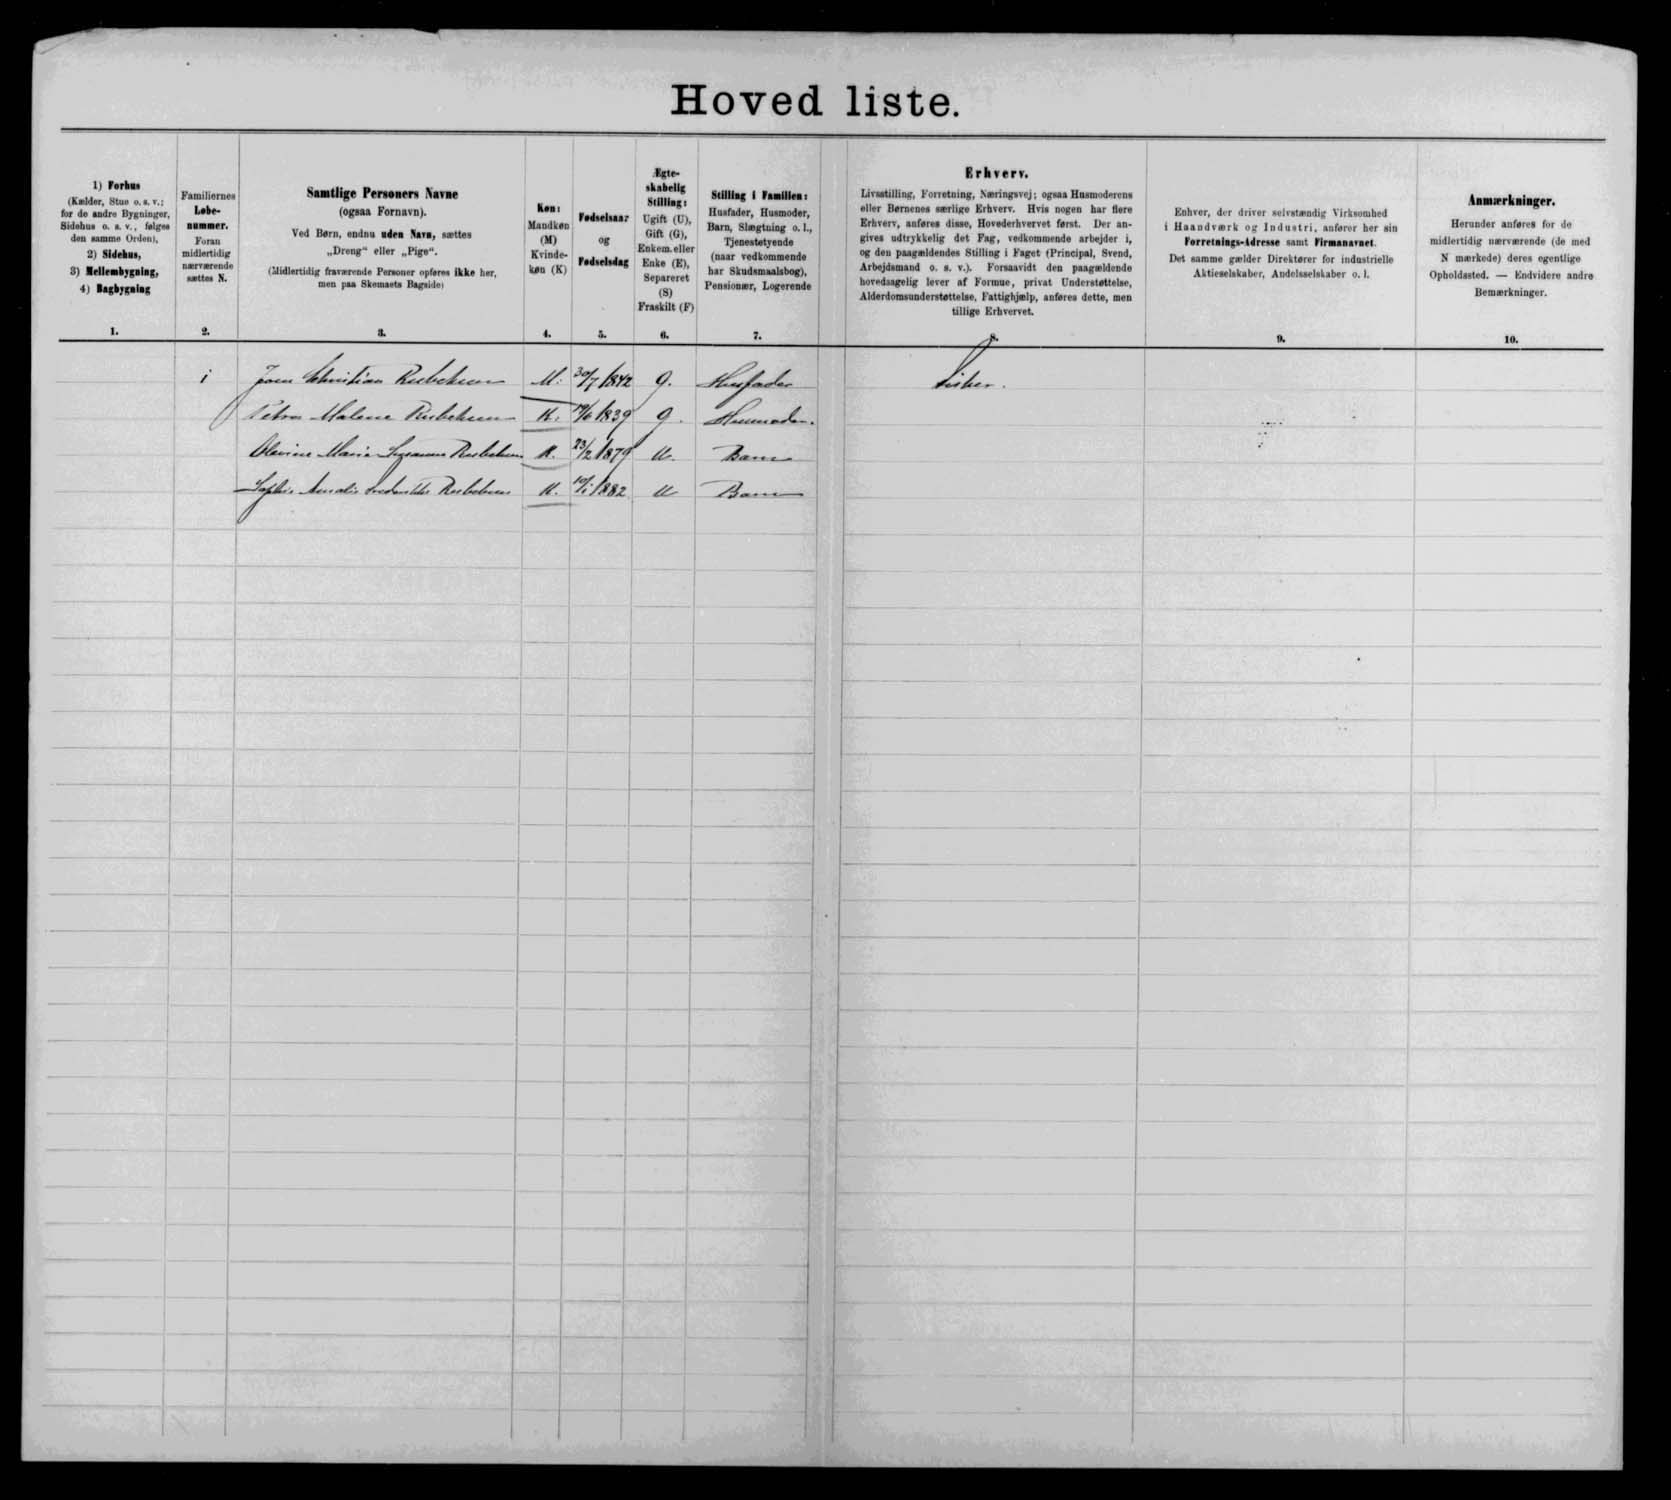 Hoved liste.
1) Forhus
(Kælder, Stue o. s. v.;
for de andre Bygninger,
Sidehus o. s. v., følges
den samme Orden),
2) Sidehus,
3) Mellembygning,
4) Bagbygning
1.
Familiernes
Løbe-
nummer.
Foran
midlertidig
nærværende
sættes N.
2.
Samtlige Personers Navne
(ogsaa Fornavn).
Ved Børn, endnu uden Navn, sættes
„Dreng“ eller „Pige“.
(Midlertidig fraværende Personer opføres ikke her,
men paa Skemaets Bagside)
3.
Køn:
Mandkøn
(M)
Kvinde-
køn (K)
4.
Fødselsaar
og
Fødselsdag
5.
Ægte-
skabelig
Stilling:
Ugift (U),
Gift (G),
Enkem. eller
Enke (E),
Separeret
(S)
Fraskilt (F)
6.
Stilling i Familien:
Husfader, Husmoder,
Barn, Slægtning o. l.,
Tjenestetyende
(naar vedkommende
har Skudsmaalsbog),
Pensionær, Logerende
7.
Erhverv.
Livsstilling, Forretning, Næringsvej; ogsaa Husmoderens
eller Børnenes særlige Erhverv. Hvis nogen har flere
Erhverv, anføres disse, Hovederhvervet først. Der an-
gives udtrykkelig det Fag, vedkommende arbejder i,
og den paagældendes Stilling i Faget (Principal, Svend,
Arbejdsmand o. s. v.). Forsaavidt den paagældende
hovedsagelig lever af Formue, privat Understøttelse,
Alderdomsunderstøttelse, Fattighjælp, anføres dette, men
tillige Erhvervet.
8.
Enhver, der driver selvstændig Virksomhed
i Haandværk og Industri, anfører her sin
Forretnings-Adresse samt Firmanavnet.
Det samme gælder Direktører for industrielle
Aktieselskaber, Andelsselskaber o. l.
9.
Anmærkninger.
Herunder anføres for de
midlertidig nærværende (de med
N mærkede) deres egentlige
Opholdssted. — Endvidere andre
Bemærkninger.
10.
1 Christian M. 30/7 1842 G. Husfader Fisker.
Petra Malene K. 1839 G. Husmoder.
Olevine Marie Susanne K. 23/2 1879 U. Barn
Sophie Amalie K. 1882 U Barn